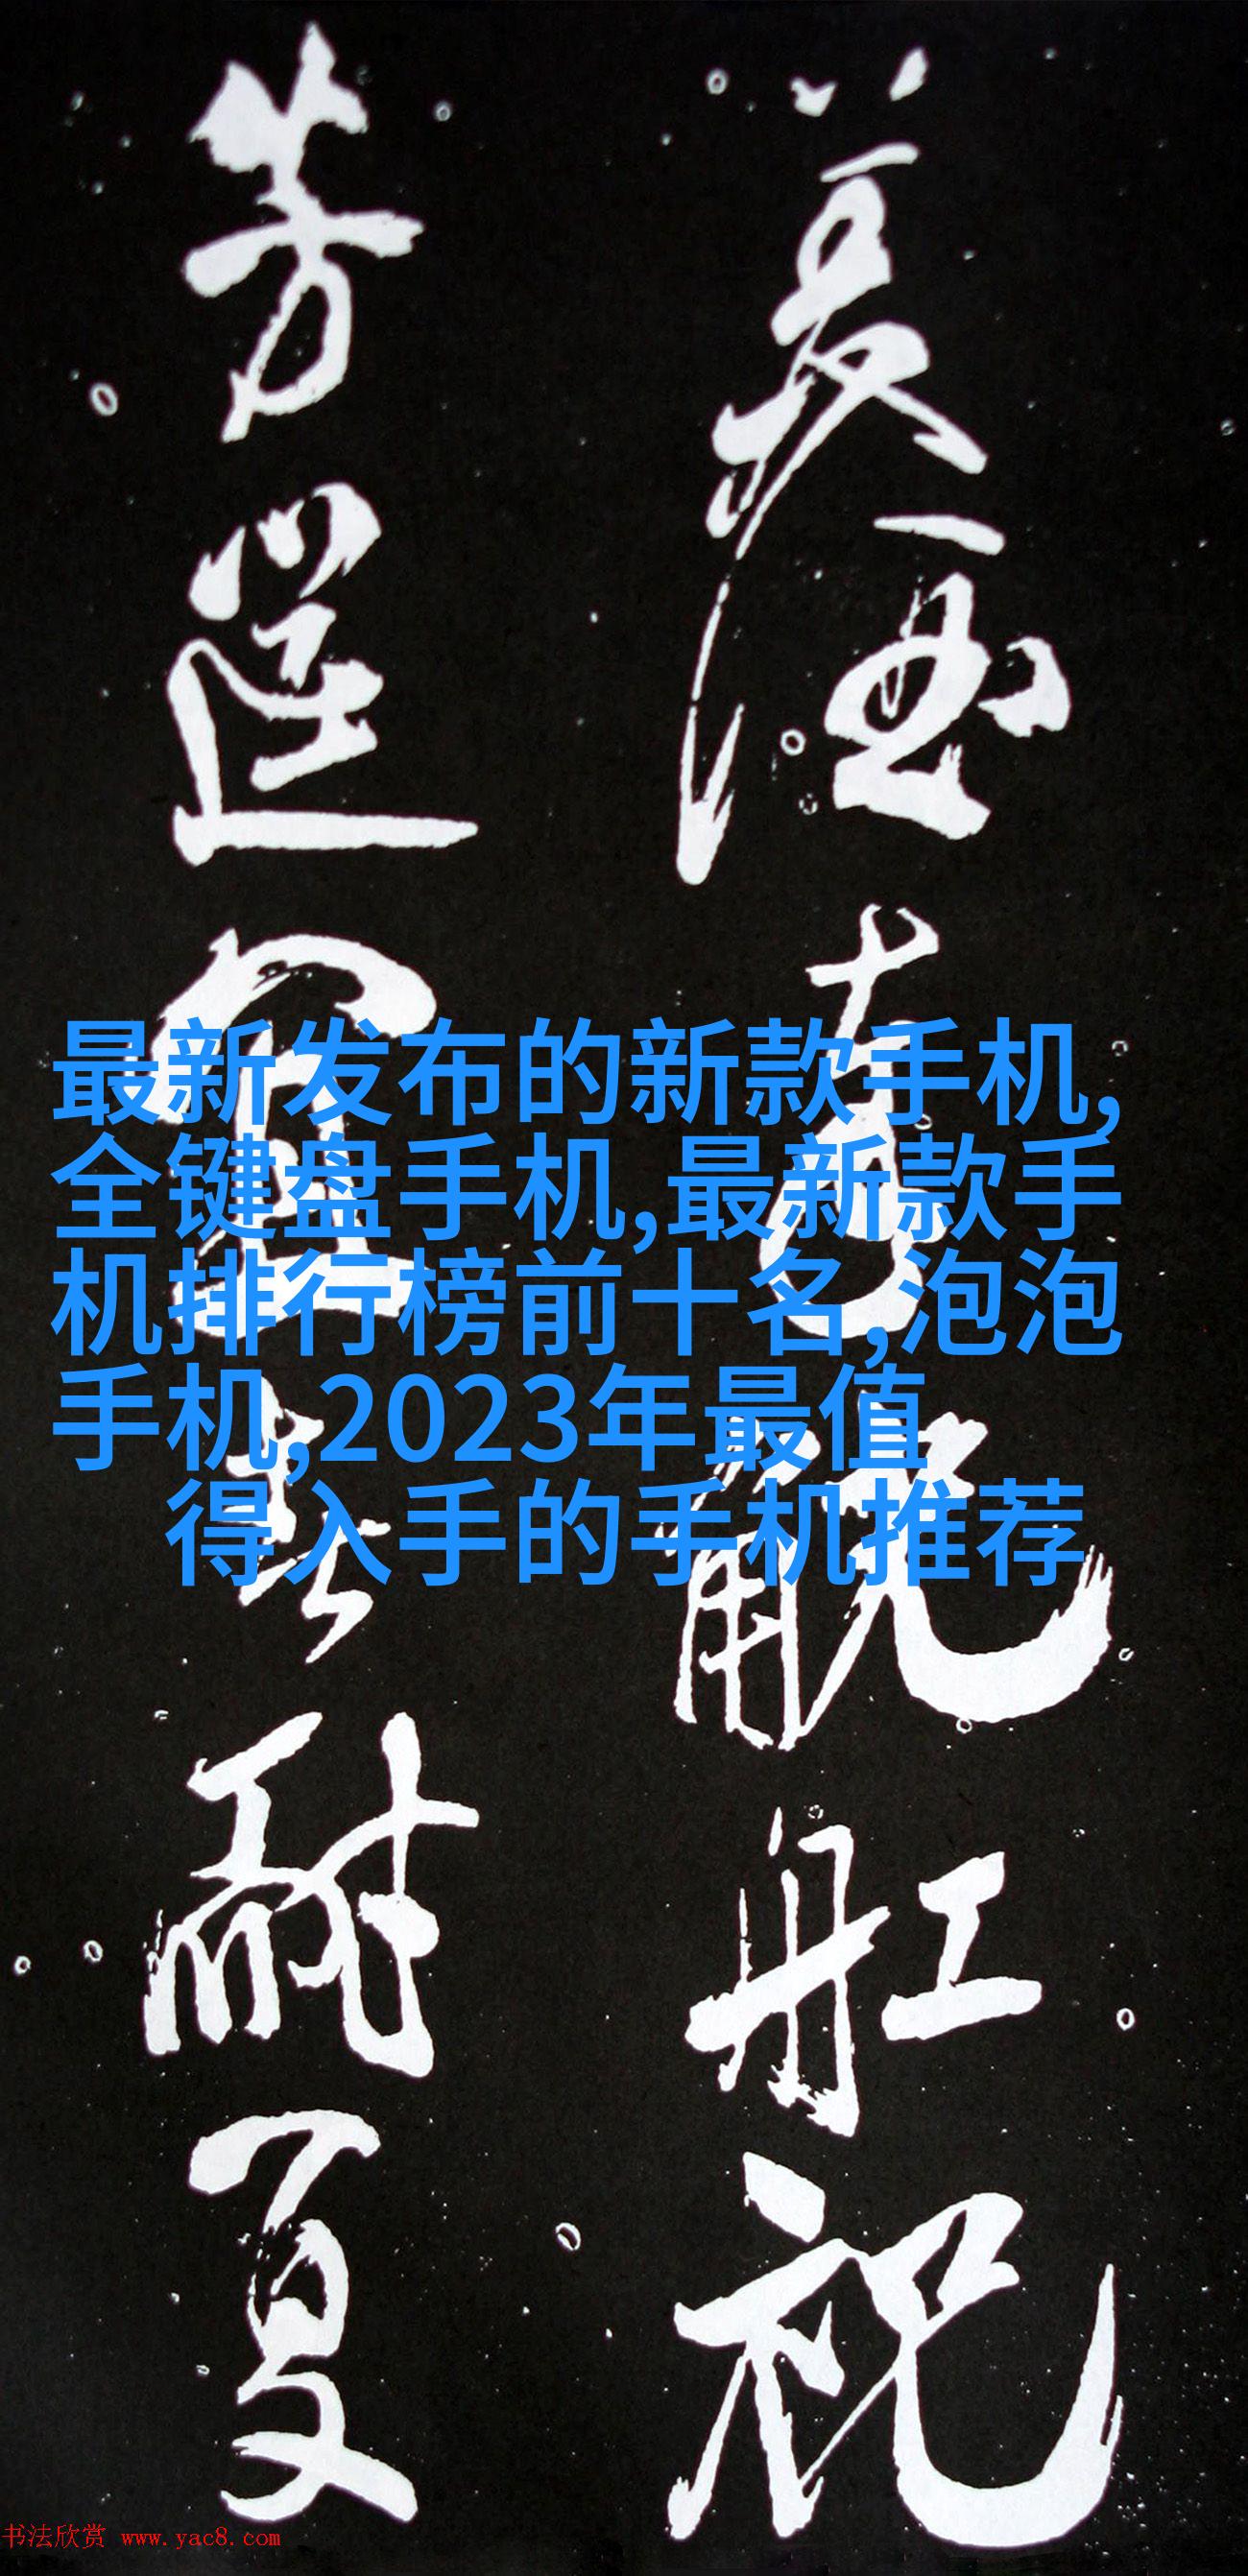 酒 觥舡祝
芳筵宜 耐夏
最新发布的新款手机,
全键盘手机,最新款手
机排行榜前十名,泡泡
手机,2023年最值
得入手的手机推荐
书法欣赏 www.yac8.com